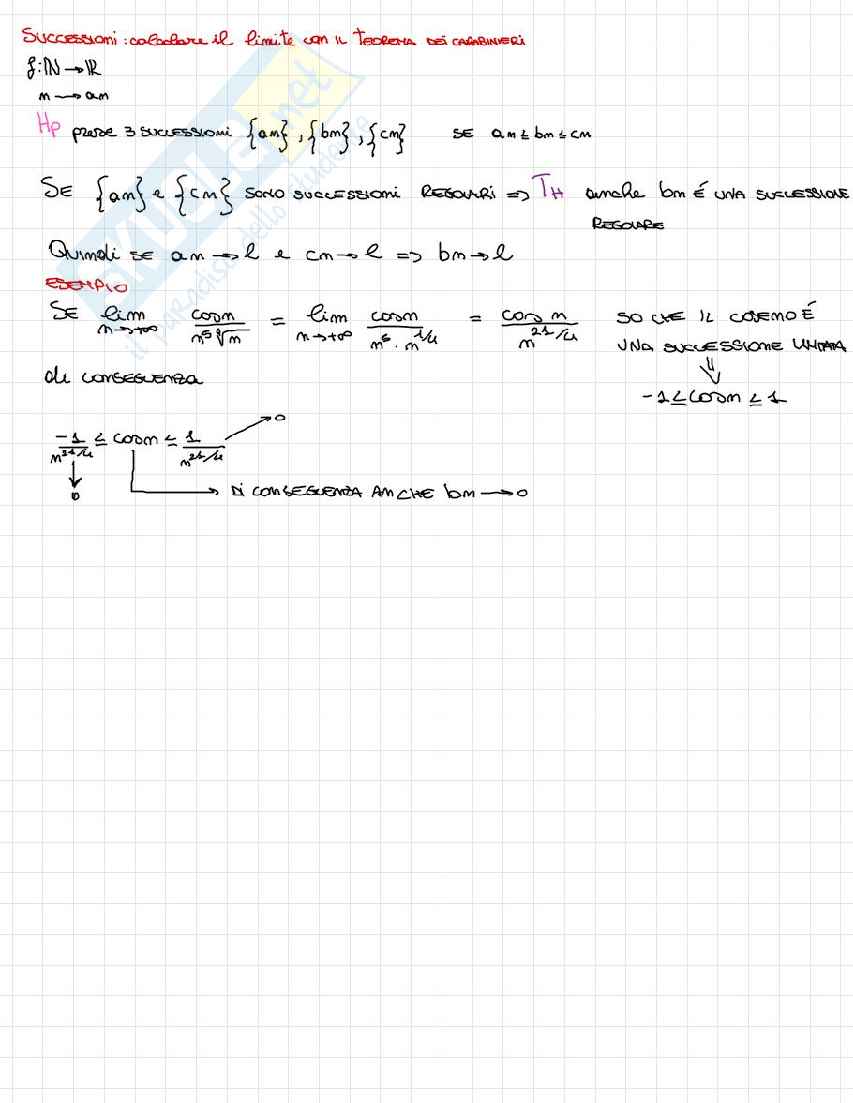 SUCCESSIONI: calcolare il limite con IL TEOREMA DEI CARABINIERI
f: ℕ → ℝ
n → an
Hp prese 3 SUCCESSIONI {an}, {bn}, {cn} SE an ≤ bn ≤ cn
SE {an} e {cn} SONO SUCCESSIONI REGOLARI => TH anche bn É UNA SUCCESSIONE
REGOLARE
Quindi SE an → l e cn → l => bn → l
ESEMPIO
SE lim n→+∞ cosn / n⁵ ∜n = lim n→+∞ cosn / n⁵ · n^1/4 = cos n / n^21/4 SO CHE IL COSENO É
UNA SUCCESSIONE LIMITATA
di CONSEGUENZA
-1 ≤ cosn ≤ 1
-1 / n^21/4 ≤ cosn ≤ 1 / n^21/4 → 0
0
DI CONSEGUENZA ANCHE bn → 0
SKUOLA.net
il paradiso dello studente